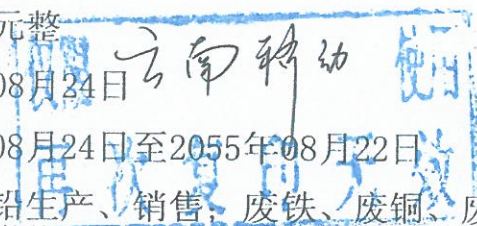 元整
08月24日 云南移动
08月24日至2055年08月22日
铅生产、销售；废铁、废铜、废